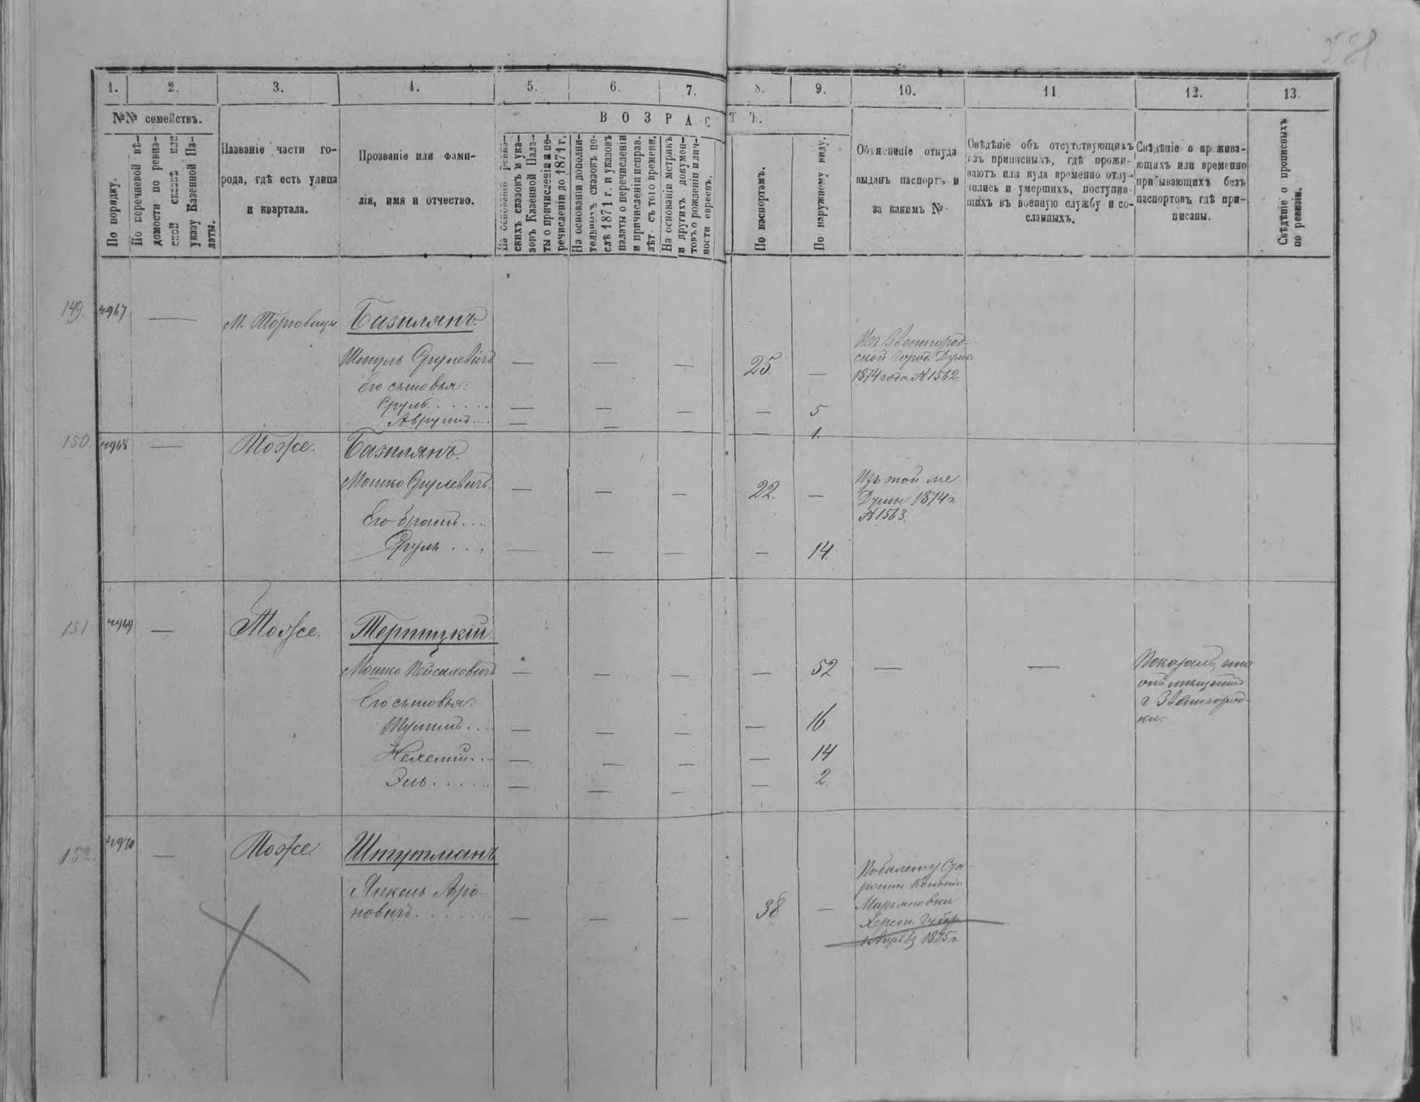 1. 2. 3. 4. 5. 6. 7. 8. 9. 10. 11 12. 13.
№№ семействъ.
ВОЗРАСТЪ.
По порядку.
По перечневой вѣ-
домости по ревиз-
ской сказкѣ или
указу Казенной Па-
латы.
Названіе части го-
рода, гдѣ есть улица
и квартала.
Прозваніе или фами-
лія, имя и отчество.
На основаніи ревиз-
скихъ сказокъ и ука-
зовъ Казенной Пала-
ты о причисленіи и пе-
речисленіи до 1871 г.
На основаніи дополни-
тельныхъ сказокъ по-
слѣ 1871 г. и указовъ
палаты о перечисленіи
и причисленіи исправ.
лѣтъ съ того времени.
На основаніи метрикъ
и другихъ докумен-
товъ о рожденіи и лич-
ности евреевъ.
По паспортамъ.
По наружному виду.
Объясненіе откуда
выданъ паспортъ и
за какимъ №
Свѣдѣніе объ отсутствующихъ
изъ приписныхъ, гдѣ прожи-
ваютъ или куда временно отлу-
чились и умершихъ, поступив-
шихъ въ военную службу и со-
сланныхъ.
Свѣдѣніе о прожива-
ющихъ или временно
прибывающихъ безъ
паспортовъ гдѣ при-
писаны.
Свѣдѣніе о прописныхъ
по ревизіи.
149. — М. Торговица Базилянъ.
Шмуль Срулевичъ — — — 25. —
Из Звенигород-
ской Город. Думы
1874 года № 1562.
Его сыновья:
Сруль — — — — 5
Аврумъ — — — 1.
150. — Тоже. Базилянъ.
Мошко Срулевичъ — — — 22. —
Изъ той же
Думы 1874 г.
№ 1563.
Его братъ
Сруль — — — — 14.
151 — Тоже.
Мошко — — — — 52 — —
Показалъ, что
онъ мещанинъ
г. Звенигород-
ки.
Его сыновья:
— — — — 16
— — — — 14
Эль — — — — 2.
152. — Тоже Штутманъ
Янкель Аро-
новичъ — — — 38 —
По билету
Марьяновки
Херсон. Губер.
1875 г.